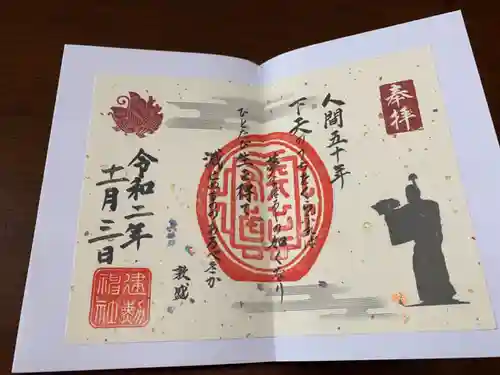 奉拝
人間五十年
下天のうちをくらぶれば
夢幻の如くなり
ひとたび生を得て
滅せぬもののあるべきか
敦盛
令和二年
十一月二三日
建勲神社